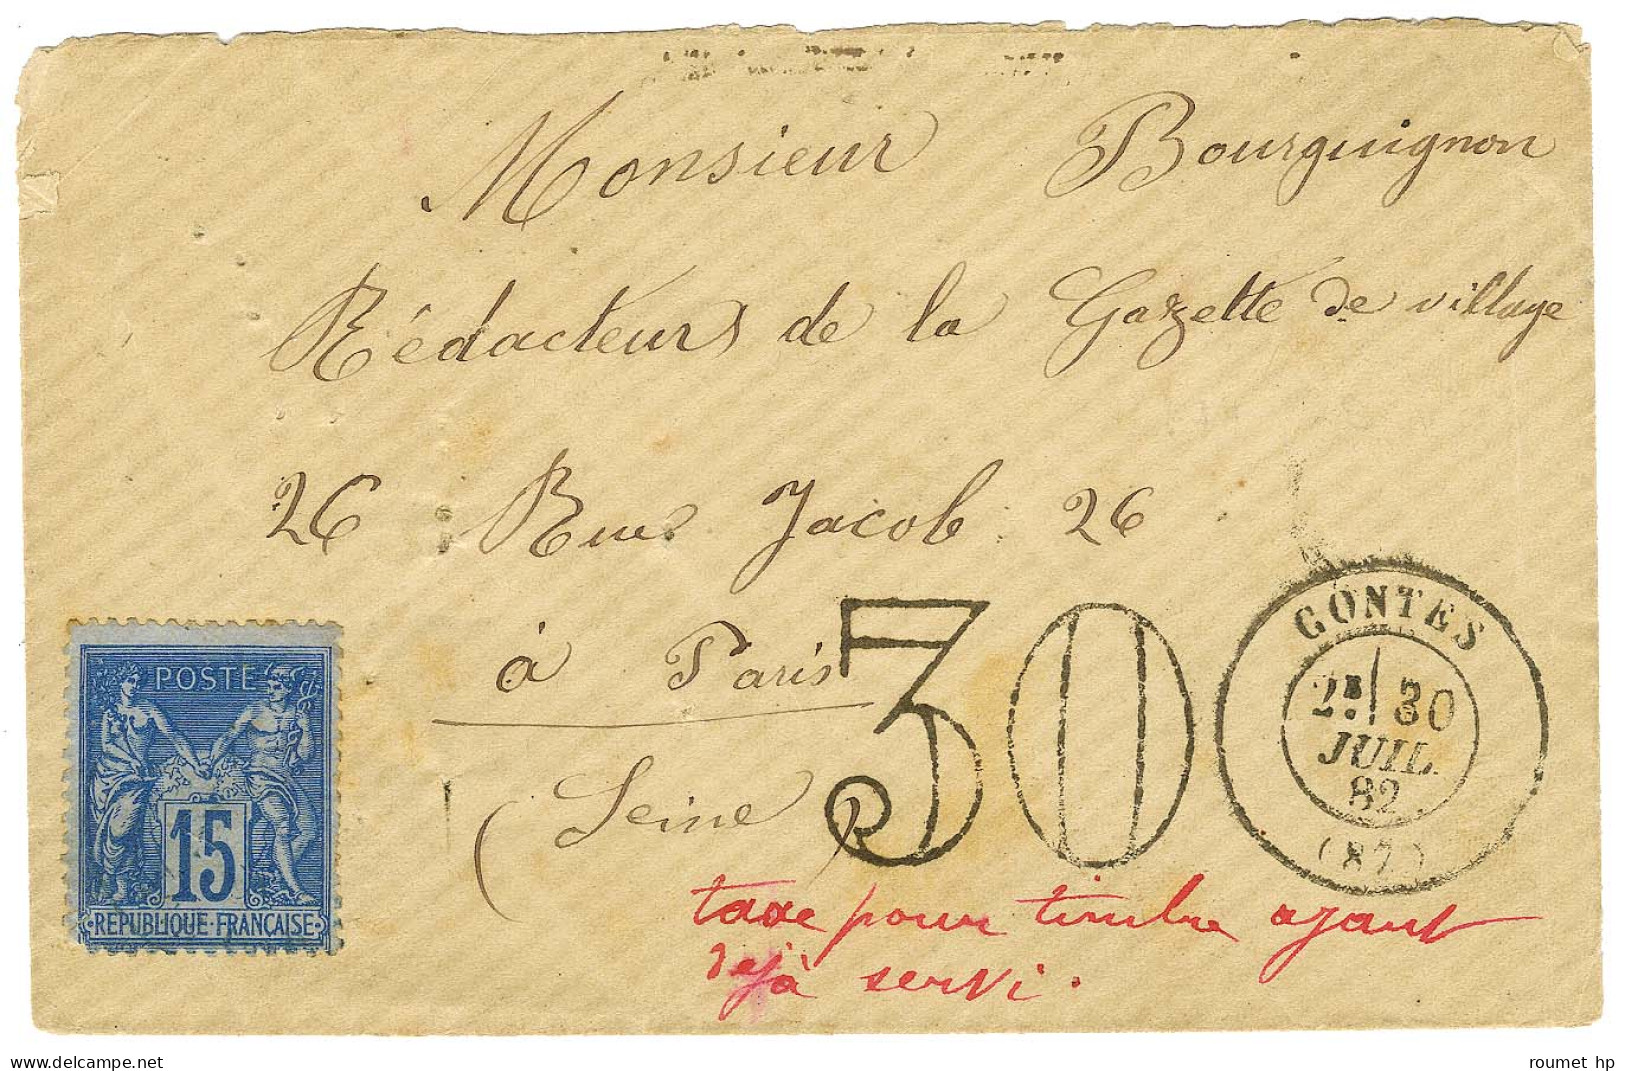 Monsieur Bourguignon
Rédacteur de la Gazette de village
26 Rue Jacob 26
à Paris
(Seine)
30
CONTES
2E 30
JUIL.
82
(87)
POSTE
15
REPUBLIQUE FRANÇAISE
taxe pour timbre ayant
dejà servi.
www.delcampe.net
roumet hp